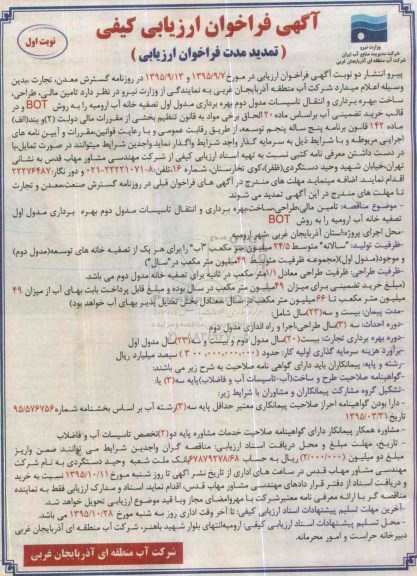 نوبت اول
آگهی فراخوان ارزیابی کیفی
( تمدید مدت فراخوان ارزیابی )
وزارت نیرو
شرکت مدیریت منابع آب ایران
شرکت آب منطقه ای آذربایجان غربی
پیرو انتشار دو نوبت آگهی فراخوان ارزیابی در مورخ ۱۳۹۵/۹/۷ و ۱۳۹۵/۹/۱۳ در روزنامه گسترش معدن، تجارت بدین
وسیله اعلام میدارد شرکت آب منطقه آذربایجان غربی به نمایندگی از وزارت نیرو در نظر دارد تامین مالی، طراحی،
ساخت بهره برداری و انتقال تاسیسات مدول دوم بهره برداری مدول اول تصفیه خانه آب ارومیه را به روش BOT و در
قالب خرید تضمینی آب براساس ماده ۲۰ الحاق برخی مواد به قانون تنظیم بخشی از مقررات مالی دولت (۲) و بند(الف)
ماده ۱۴۲ قانون برنامه پنج ساله پنجم توسعه، از طریق رقابت عمومی و با رعایت قوانین، مقررات و آیین نامه های
اجرایی مربوطه و با شرایط ذیل به سرمایه گذار واجد شرایط واگذار نماید. واجدین شرایط میتوانند در صورت تمایل، با
در دست داشتن معرفی نامه کتبی نسبت به تهیه اسناد ارزیابی کیفی از شرکت مهندسی مشاور مهاب قدس به نشانی
تهران، خیابان شهید وحید دستگردی(ظفر)، کوی تخارستان، شماره ۱۶، تلفن: ۸-۲۲۲۲۱۰۷۱-۰۲۱ و دور نگار: ۲۲۲۷۶۴۸۷
اقدام نمایند. اضافه مینماید مهلت های مندرج در آگهی های فراخوان قبلی در روزنامه گسترش صنعت، معدن و تجارت
تا مهلت های مندرج در این آگهی تمدید می شوند.
- موضوع مناقصه: تامین مالی، طراحی، ساخت، بهره برداری و انتقال تاسیسات مدول دوم بهره برداری مدول اول
تصفیه خانه آب ارومیه را به روش BOT
- محل اجرای پروژه: استان آذربایجان غربی، شهر ارومیه
-ظرفیت تولید: "سالانه" متوسط ۲۴/۵ میلیون متر مکعب "آب" را برای هر یک از تصفیه خانه های توسعه(مدول دوم)
و موجود(مدول اول)(مجموعه ظرفیت متوسط ۴۹ میلیون متر مکعب در "سال")
-ظرفیت طراحی: ظرفیت طراحی معادل ۱/۱ متر مکعب در ثانیه برای تصفیه خانه مدول دوم می باشد.
(مبلغ خرید تضمینی برای میزان ۴۹ میلیون متر مکعب در سال بوده و مبلغ قابل پرداخت بابت بهای آب از میزان ۴۹
میلیون متر مکعب تا ۶۶ میلیون متر مکعب در سال معادل بخش تعدیل پذیر بهای آب خواهد بود)
-مدت پیمان: بیست و سه(۲۳)سال شامل:
-دوره احداث: سه (۳)سال طراحی، اجرا و راه اندازی مدول دوم
-دوره بهره برداری تجارت: بیست(۲۰)سال مدول دوم و بیست و سه(۲۳)سال مدول اول
-برآورد هزینه سرمایه گذاری اولیه کار: حدود (۳۰۰۰،۰۰۰،۰۰۰،۰۰۰) سیصد میلیارد ریال
-رشته و پایه: پیمانکاران باید دارای گواهی نامه صلاحیت به شرح زیر می باشند:
-گواهینامه صلاحیت طرح و ساخت(آب-تاسیسات آب و فاضلاب)پایه سه(۳) یا:
-تشکیل گروه مشارکت پیمانکاران و مشاوران با شرایط زیر:
- دارا بودن گواهینامه احراز صلاحیت پیمانکاری معتبر حداقل پایه سه(۳)رشته آب بر اساس بخشنامه شماره ۹۵/۵۷۶۷۵۶
تاریخ ۱۳۹۵/۰۳/۳۱
- مشاوره همکار پیمانکار دارای گواهینامه صلاحیت خدمات مشاوره پایه دو(۲)تخصص تاسیسات آب و فاضلاب
- تاریخ، مهلت، مبلغ و محل دریافت اسناد ارزیابی: مناقصه گران واجدین شرایط می توانند ضمن واریز
مبلغ دو میلیون (۲/۰۰۰/۰۰۰) ریال به حساب ۶۷۸۷۹۲۷۸/۶۸ بانک ملت شعبه وحید دستگردی به نام شرکت
مهندسی مشاور مهاب قدس در ساعت های اداری از تاریخ نشر آگهی تا روز شنبه مورخ ۱۳۹۵/۱۰/۱۱ نسبت به خرید
و دریافت اسناد از دفتر قرار دادهای مهندسی مشاور مهاب قدس، اقدام نمایند. اسناد و مدارک ارزیابی فقط به نماینده
مناقصه گر با ارائه معرفی نامه معتبر شرکت با مهر و امضای مجاز و با قید موضوع ارزیابی تحویل خواهد شد.
-آخرین مهلت تسلیم پیشنهادات اسناد ارزیابی کیفی: تا آخر وقت اداری روز سه شنبه مورخ ۱۳۹۵/۱۰/۲۸ می باشد.
- محل تسلیم پیشنهادات اسناد ارزیابی کیفی: ارومیه، انتهای بلوار شهید باهنر، شرکت آب منطقه ای آذربایجان غربی
دبیرخانه حراست و امور محرمانه.
شرکت آب منطقه ای آذربایجان غربی